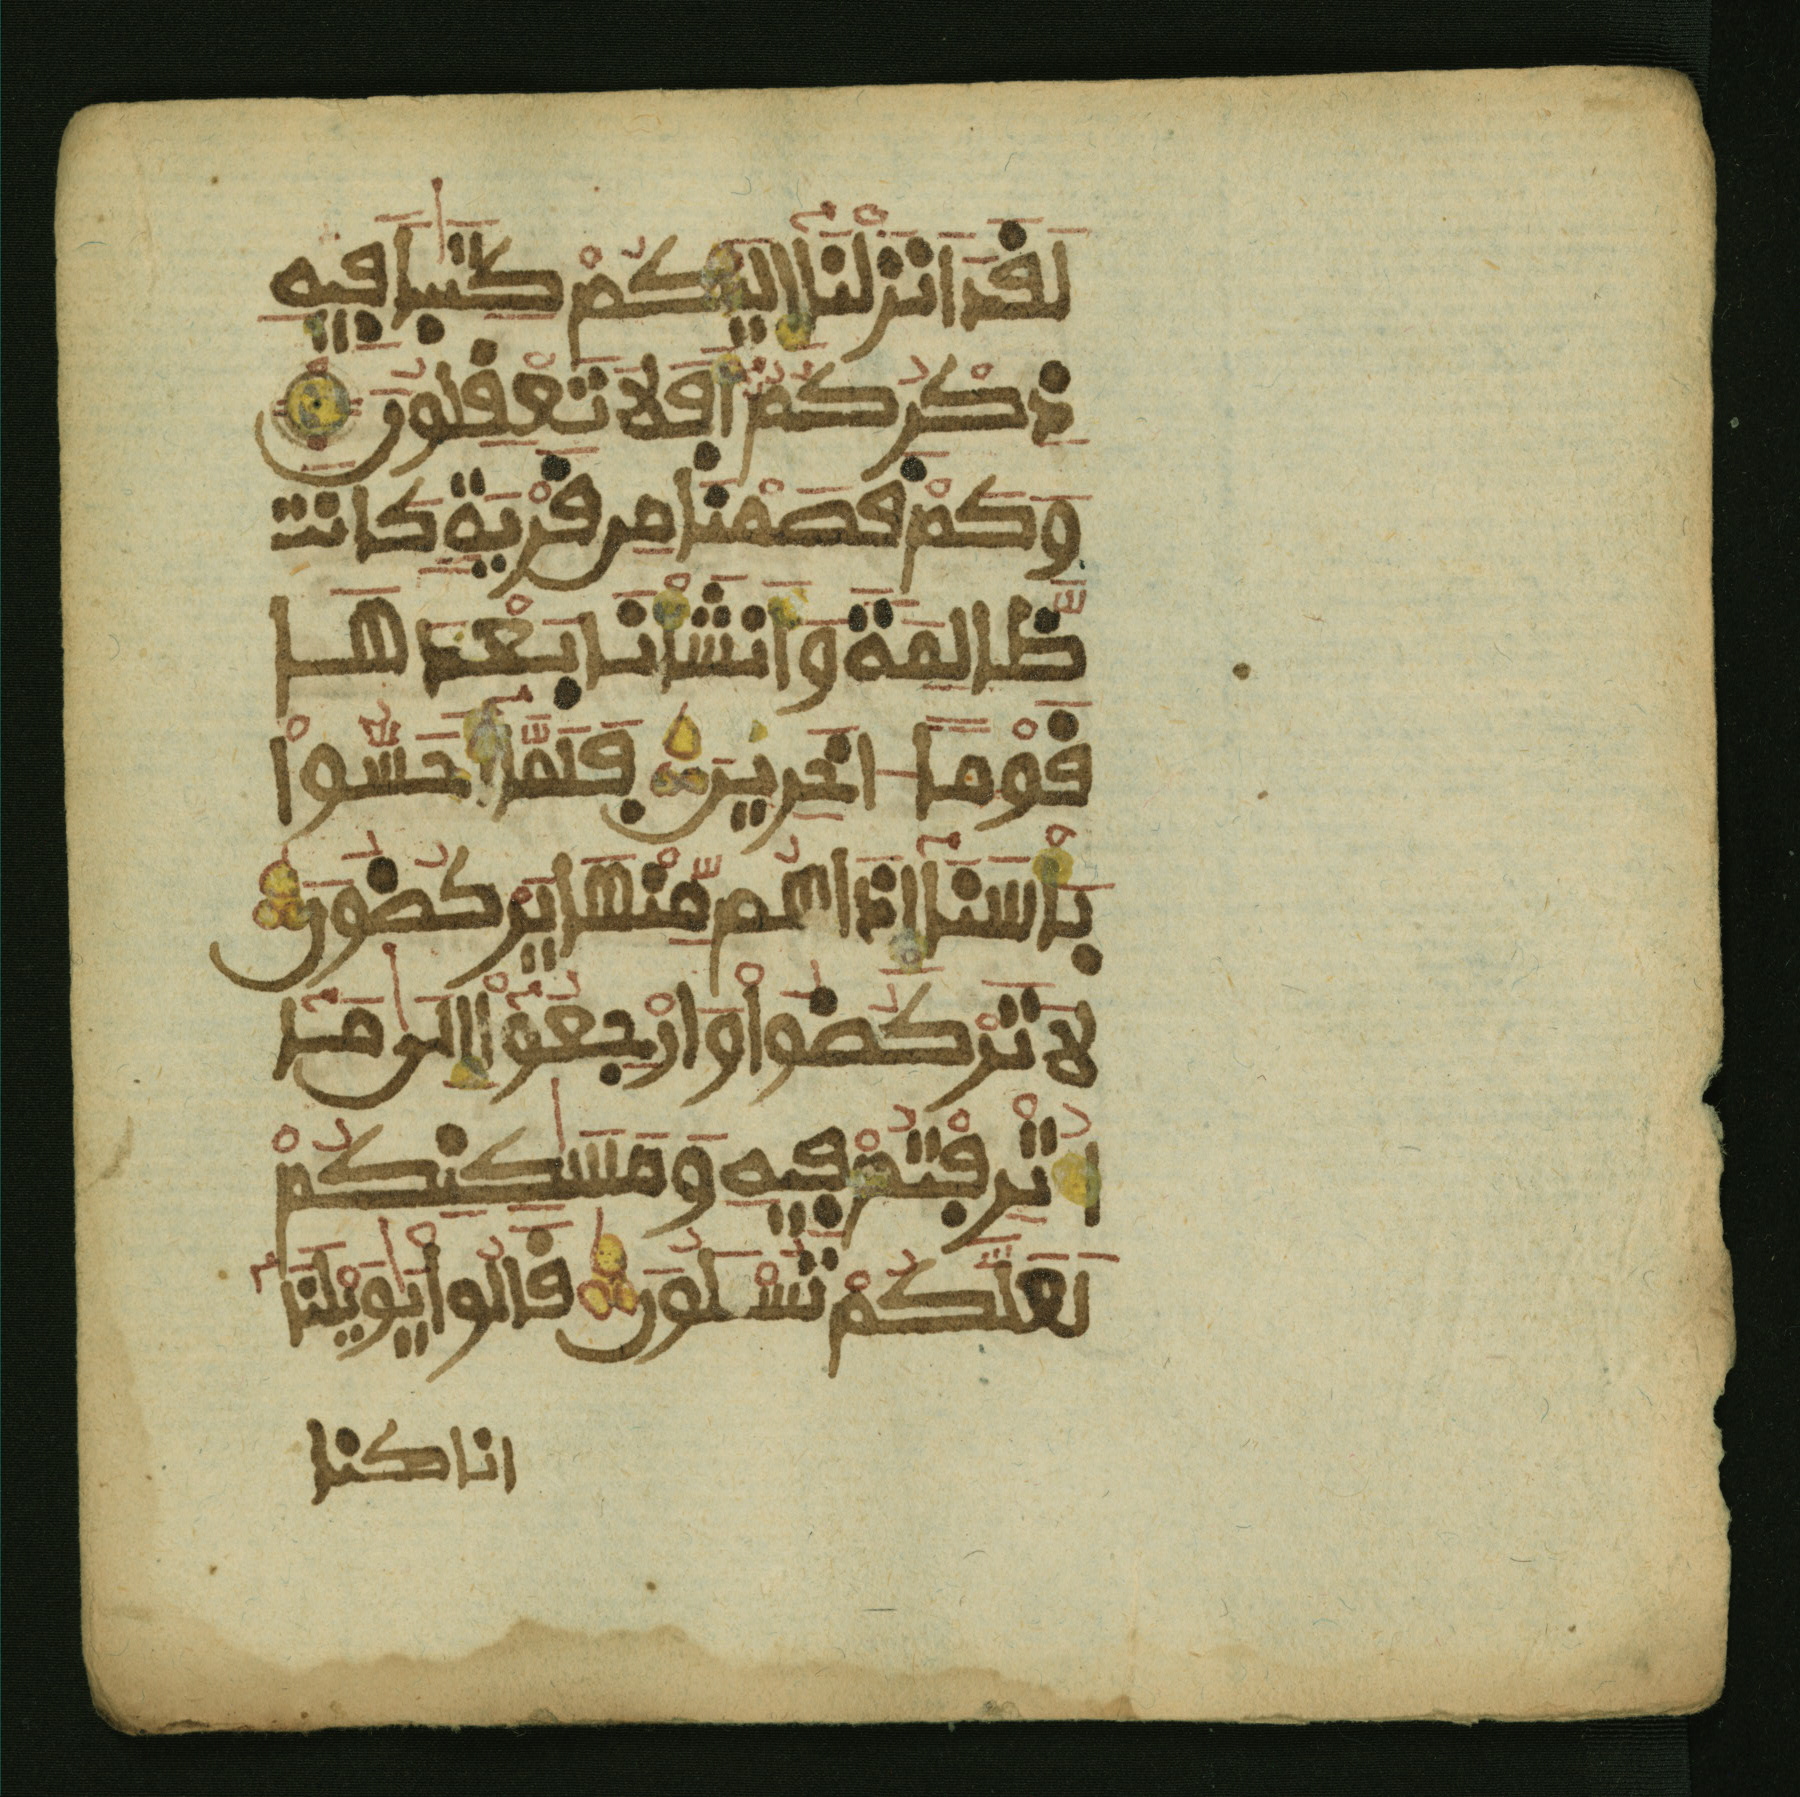 لَقَدَ اَنزَلْنَآ إِلَيْكُمْ كِتَٰباٗ فِيهِ
ذِكْرُكُمُۥٓ أَفَلَا تَعْقِلُونَ
وَكَمْ قَصَمْنَا مِن قَرْيَةٖ كَانَت
ظَّالِمَةٗ وَأَنشَأْنَا بَعْدَهَا
قَوْماً اٰخَرِينَ فَلَمَّآ أَحَسُّواْ
بَأْسَنَآ إِذَا هُم مِّنْهَا يَرْكُضُونَ
لَا تَرْكُضُواْ وَارْجِعُوٓاْ إِلَىٰ مَآ
أُتْرِفْتُمْ فِيهِ وَمَسَٰكِنِكُمْ
لَعَلَّكُمْ تُسْـَٔلُونَ قَالُواْ يَٰوَيْلَنَآ
انا كنا